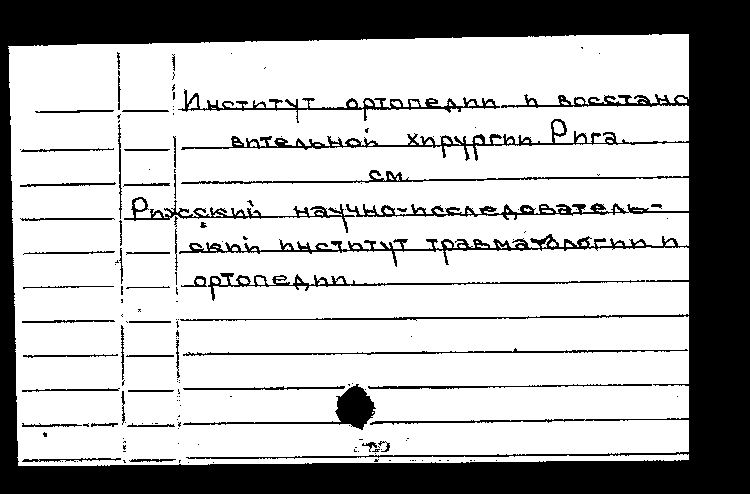 Институт ортопедии и восстано
вительной хирургии. Рига.
см.
Рижский научно-исследователь-
ский институт травматологии и
ортопедии.